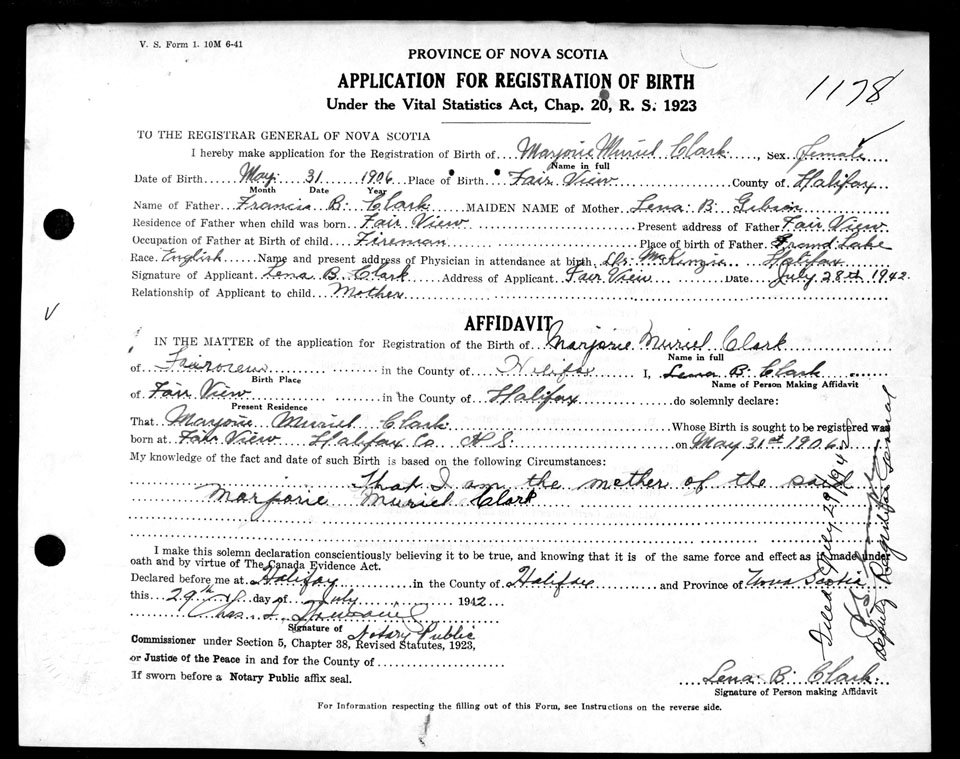 V. S. Form 1. 10M 6-41
PROVINCE OF NOVA SCOTIA
APPLICATION FOR REGISTRATION OF BIRTH
1178
Under the Vital Statistics Act, Chap. 20, R. S. 1923
TO THE REGISTRAR GENERAL OF NOVA SCOTIA
I hereby make application for the Registration of Birth of Marjorie Muriel Clark Sex female
Name in full
Date of Birth May 31 1906 Place of Birth Fair View County of Halifax
Month Date Year
Name of Father Francis B. Clark MAIDEN NAME of Mother Lena B Gibson
Residence of Father when child was born Fair View Present address of Father Fair View
Occupation of Father at Birth of child Fireman Place of birth of Father Grand Lake
Race English Name and present address of Physician in attendance at birth Dr. McKenzie Halifax
Signature of Applicant Lena B Clark Address of Applicant Fair View Date July 28th 1942
Relationship of Applicant to child Mother
AFFIDAVIT
IN THE MATTER of the application for Registration of the Birth of Marjorie Muriel Clark
Name in full
of in the County of Halifax I, Lena B. Clark
Birth Place Name of Person Making Affidavit
of Fair View in the County of Halifax do solemnly declare:
Present Residence
That Marjorie Muriel Clark Whose Birth is sought to be registered was
born at Fair View Halifax Co N.S. on May 31st 1906
My knowledge of the fact and date of such Birth is based on the following Circumstances:
That I am the mother of the said
Marjorie Muriel Clark
I make this solemn declaration conscientiously believing it to be true, and knowing that it is of the same force and effect as if made under
oath and by virtue of The Canada Evidence Act.
Declared before me at Halifax in the County of Halifax and Province of Nova Scotia
this 29th day of July 1942
Chas
Signature of Notary Public
Commissioner under Section 5, Chapter 38, Revised Statutes, 1923,
or Justice of the Peace in and for the County of
If sworn before a Notary Public affix seal.
Lena B. Clark
Signature of Person making Affidavit
For Information respecting the filling out of this Form, see Instructions on the reverse side.
Filed July 29/1942
Deputy Registrar General